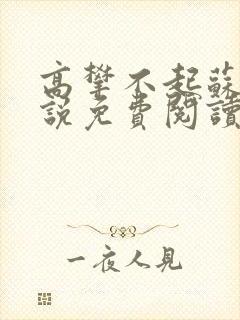 高攀不起蘇
說免費閱讀
一夜人見